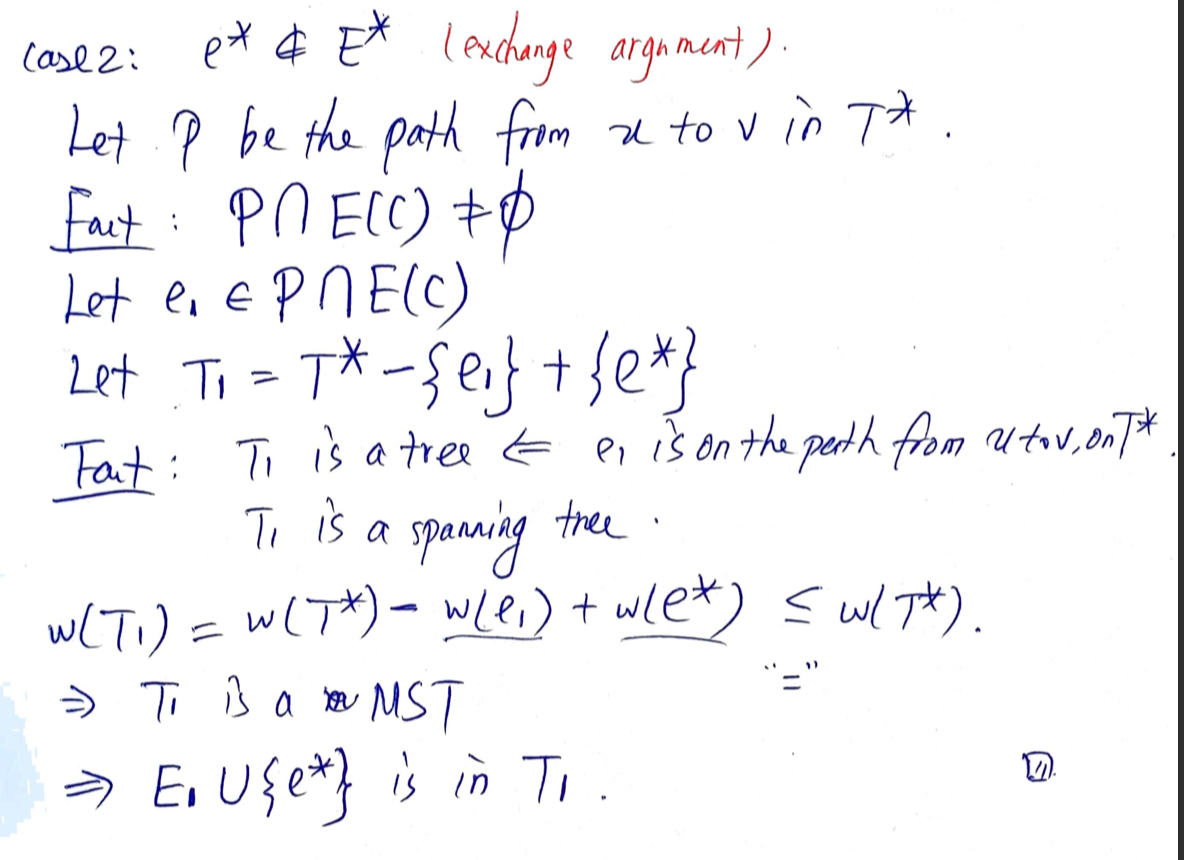 Case 2: e* ∉ E* (exchange argument).
Let P be the path from u to v in T*.
Fact: P ∩ E(C) ≠ ∅
Let e₁ ∈ P ∩ E(C)
Let T₁ = T* - {e₁} + {e*}
Fact: T₁ is a tree ⇐ e₁ is on the path from u to v, on T*.
T₁ is a spanning tree.
w(T₁) = w(T*) - w(e₁) + w(e*) ≤ w(T*).
"="
⇒ T₁ is a MST
⇒ E₁ ∪ {e*} is in T₁.